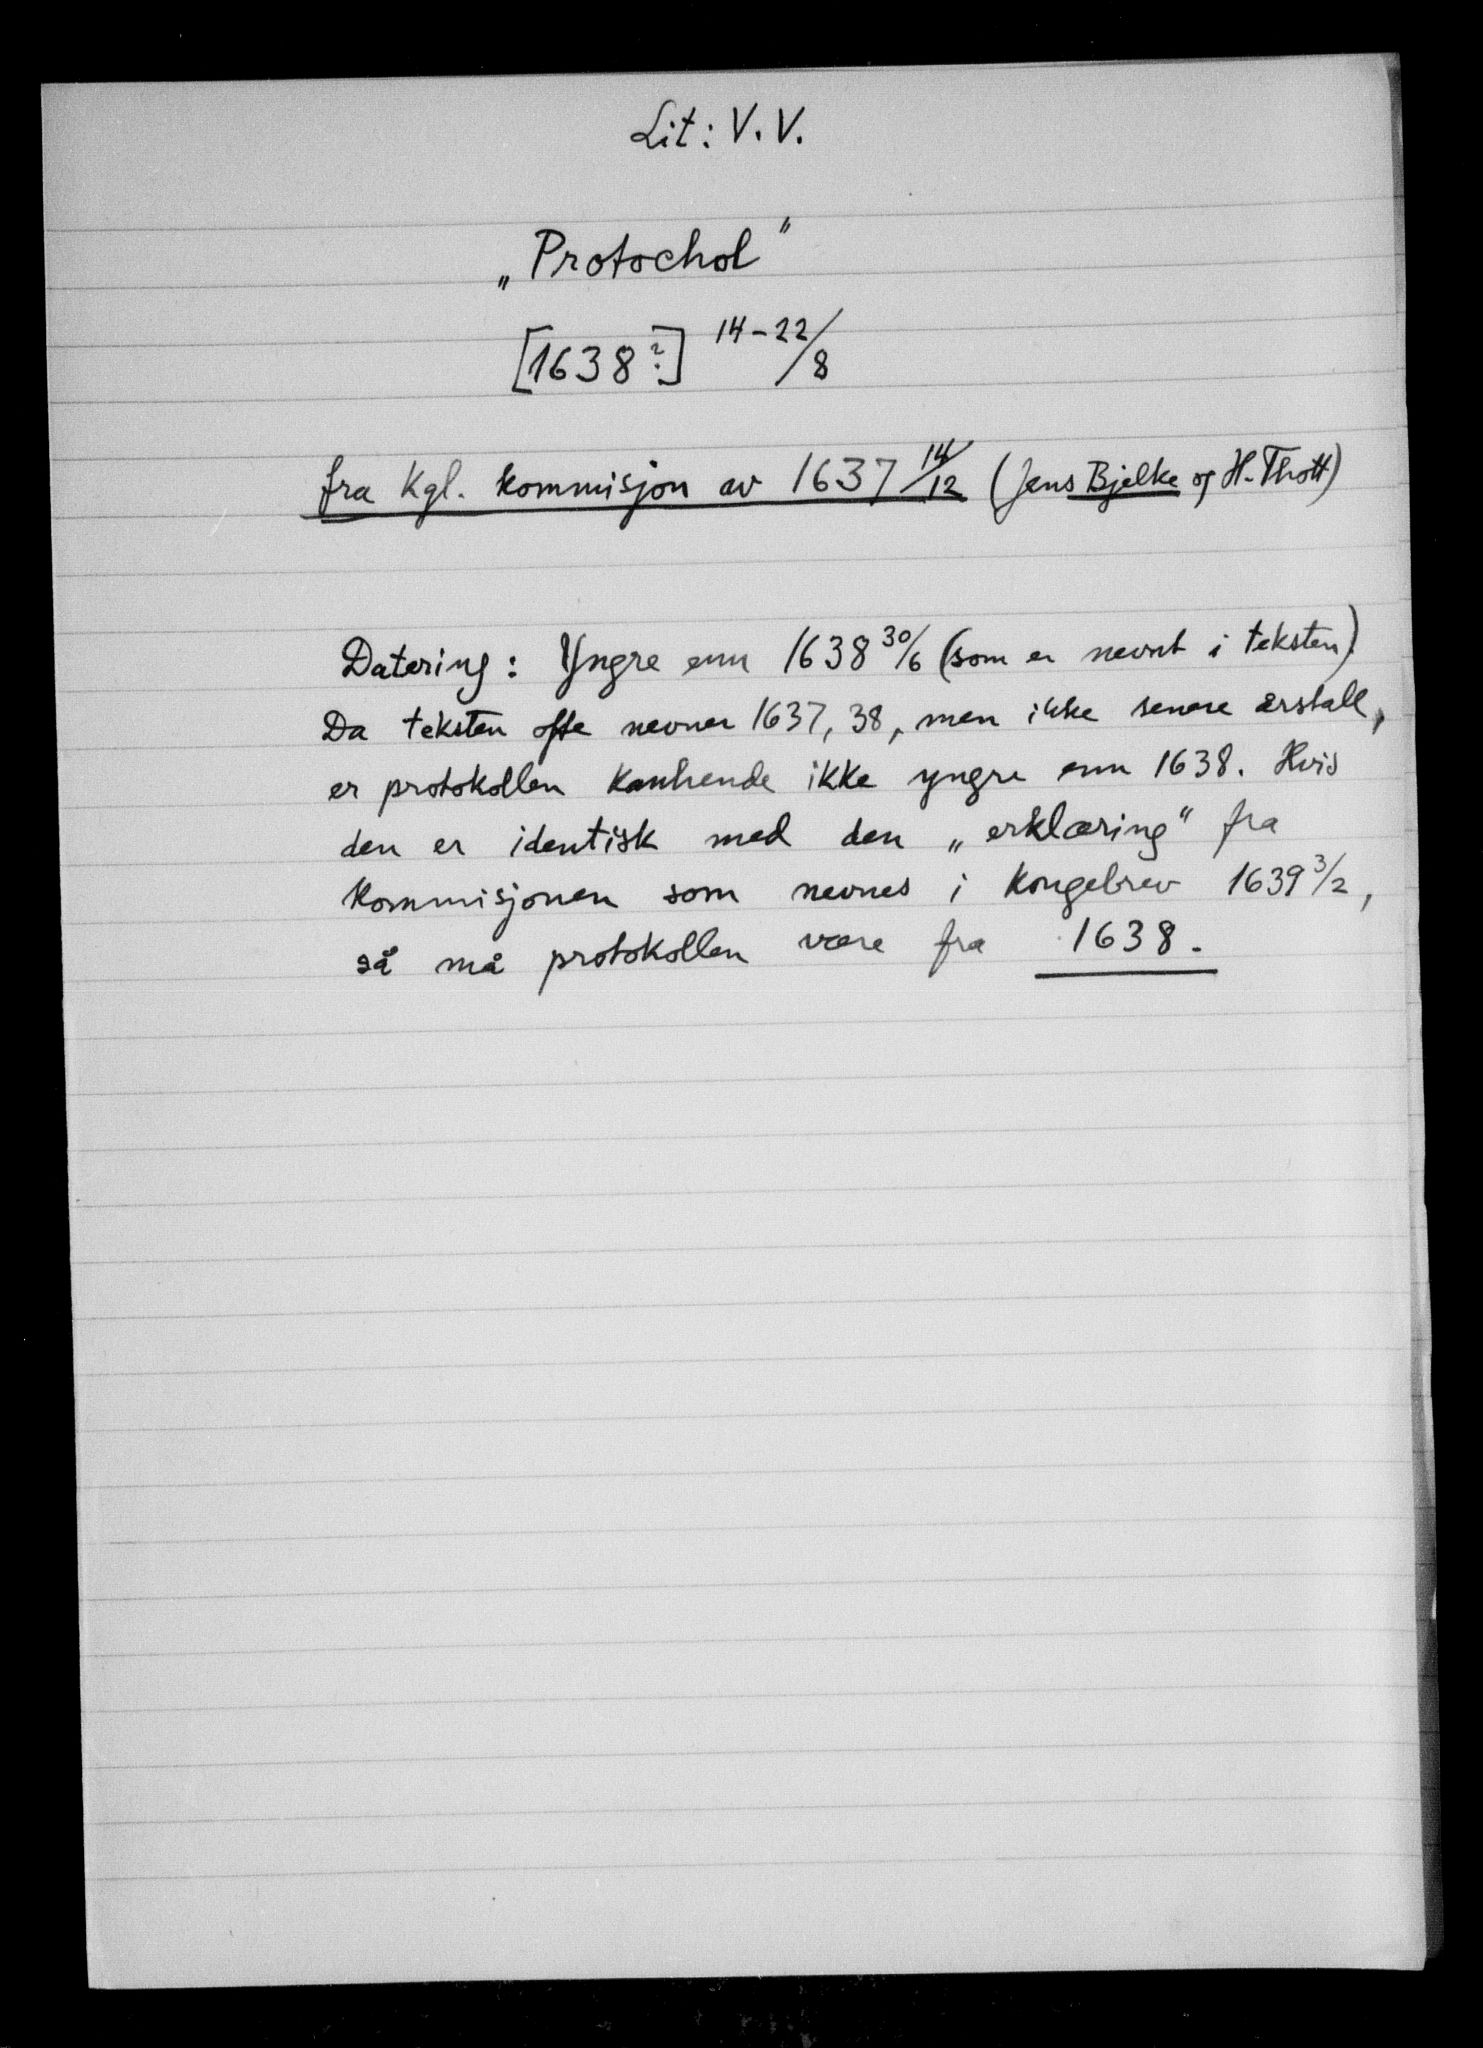 Lit: V. V.
„Protochol"
[1638?] 14-22/8
fra Kgl. kommisjon av 1637 14/12 (Jens Bjelke og H. Thott)
Datering: Yngre enn 1638 30/6 (som er nevnt i teksten).
Da teksten ofte nevner 1637, 38, men ikke senere årstall,
er protokollen kanhende ikke yngre enn 1638. Hvis
den er identisk med den „erklæring" fra
kommisjonen som nevnes i kongebrev 1639 3/2,
så må protokollen være fra 1638.